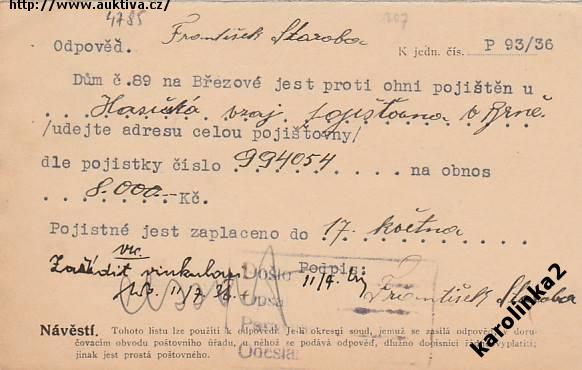 http://www.auktiva.cz/
4785
František Staroba
Odpověď. K jedn. čís. P 93/36
Dům č.89 na Březové jest proti ohni pojištěn u
Hasičská vzaj. pojišťovna v Brně
/udejte adresu celou pojišťovny/
dle pojistky číslo 994054 na obnos
8.000 Kč.
Pojistné jest zaplaceno do 17. května
Zařídit vinkulaci
Došlo Podpis:
František Staroba
Opsa
Odeslá
Návěstí. Tohoto listu lze použíti k odpovědi. Je-li okresní soud, jemuž se zasílá odpověď, v doru-
čovacím obvodu poštovního úřadu, u něhož se podává odpověď, dlužno dopisnici řádně vyplatiti;
jinak jest prostá poštovného.
karolinka2